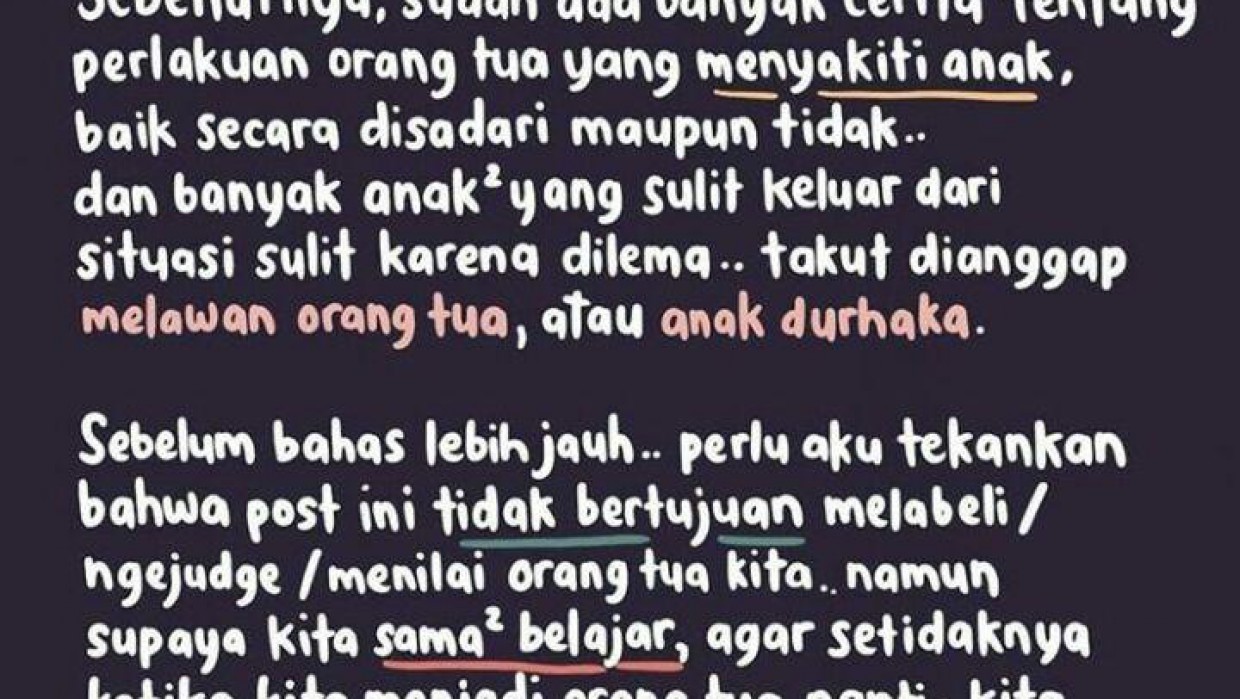 Sebenarnya, sudah ada banyak cerita tentang
perlakuan orang tua yang menyakiti anak,
baik secara disadari maupun tidak..
dan banyak anak² yang sulit keluar dari
situasi sulit karena dilema.. takut dianggap
melawan orang tua, atau anak durhaka.
Sebelum bahas lebih jauh.. perlu aku tekankan
bahwa post ini tidak bertujuan melabeli/
ngejudge/menilai orang tua kita.. namun
supaya kita sama² belajar, agar setidaknya
ketika kita menjadi orang tua nanti, kita